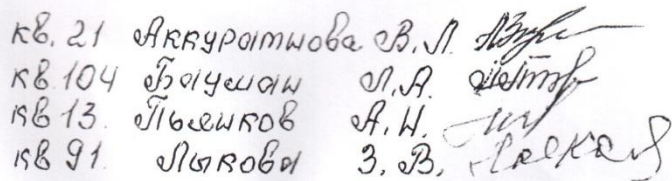 кв. 21 Аккуратнова В. Л.
кв. 104 Бауман Л. А.
кв. 13. Пьянков А. Н.
кв. 91. Лыкова З. В.